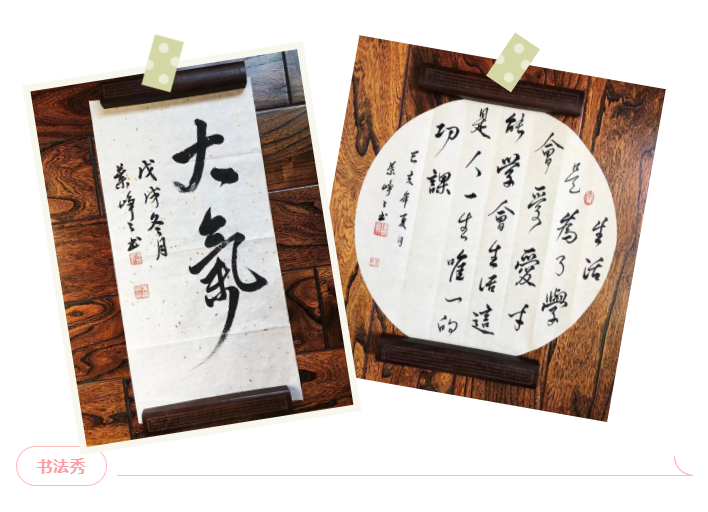 大氣
戊戌冬月
葉崢々书
生活
是為了學
會愛愛才
能學會生活這
是人一生唯一的
功課
己亥年夏月
葉崢々书
书法秀